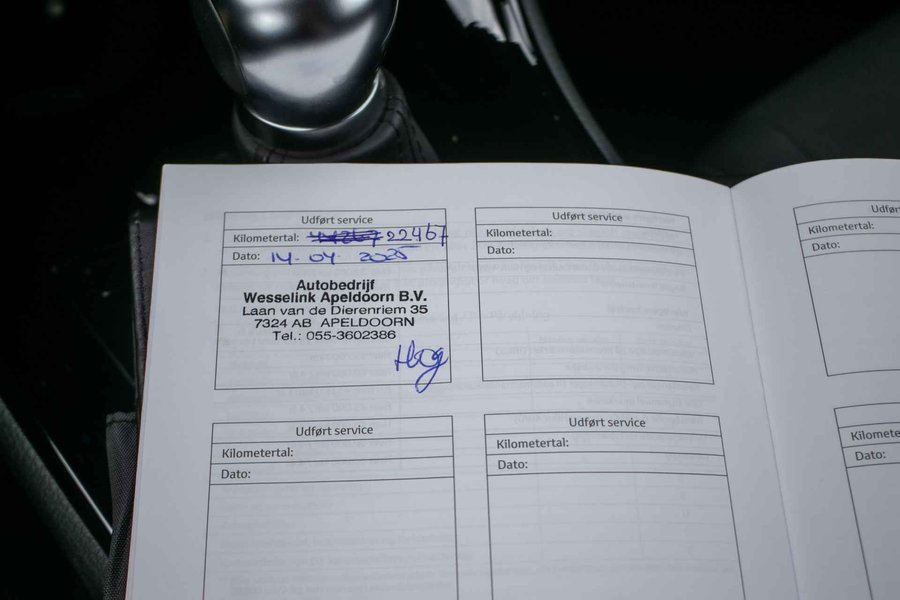 Udført service
Kilometertal: 22467
Dato: 14-04 2025
Autobedrijf
Wesselink Apeldoorn B.V.
Laan van de Dierenriem 35
7324 AB APELDOORN
Tel.: 055-3602386
Udført service
Kilometertal:
Dato:
Udført service
Kilometertal:
Dato:
Udført service
Kilometertal:
Dato:
Udfør
Kilometertal:
Dato:
Kilomete
Dato: